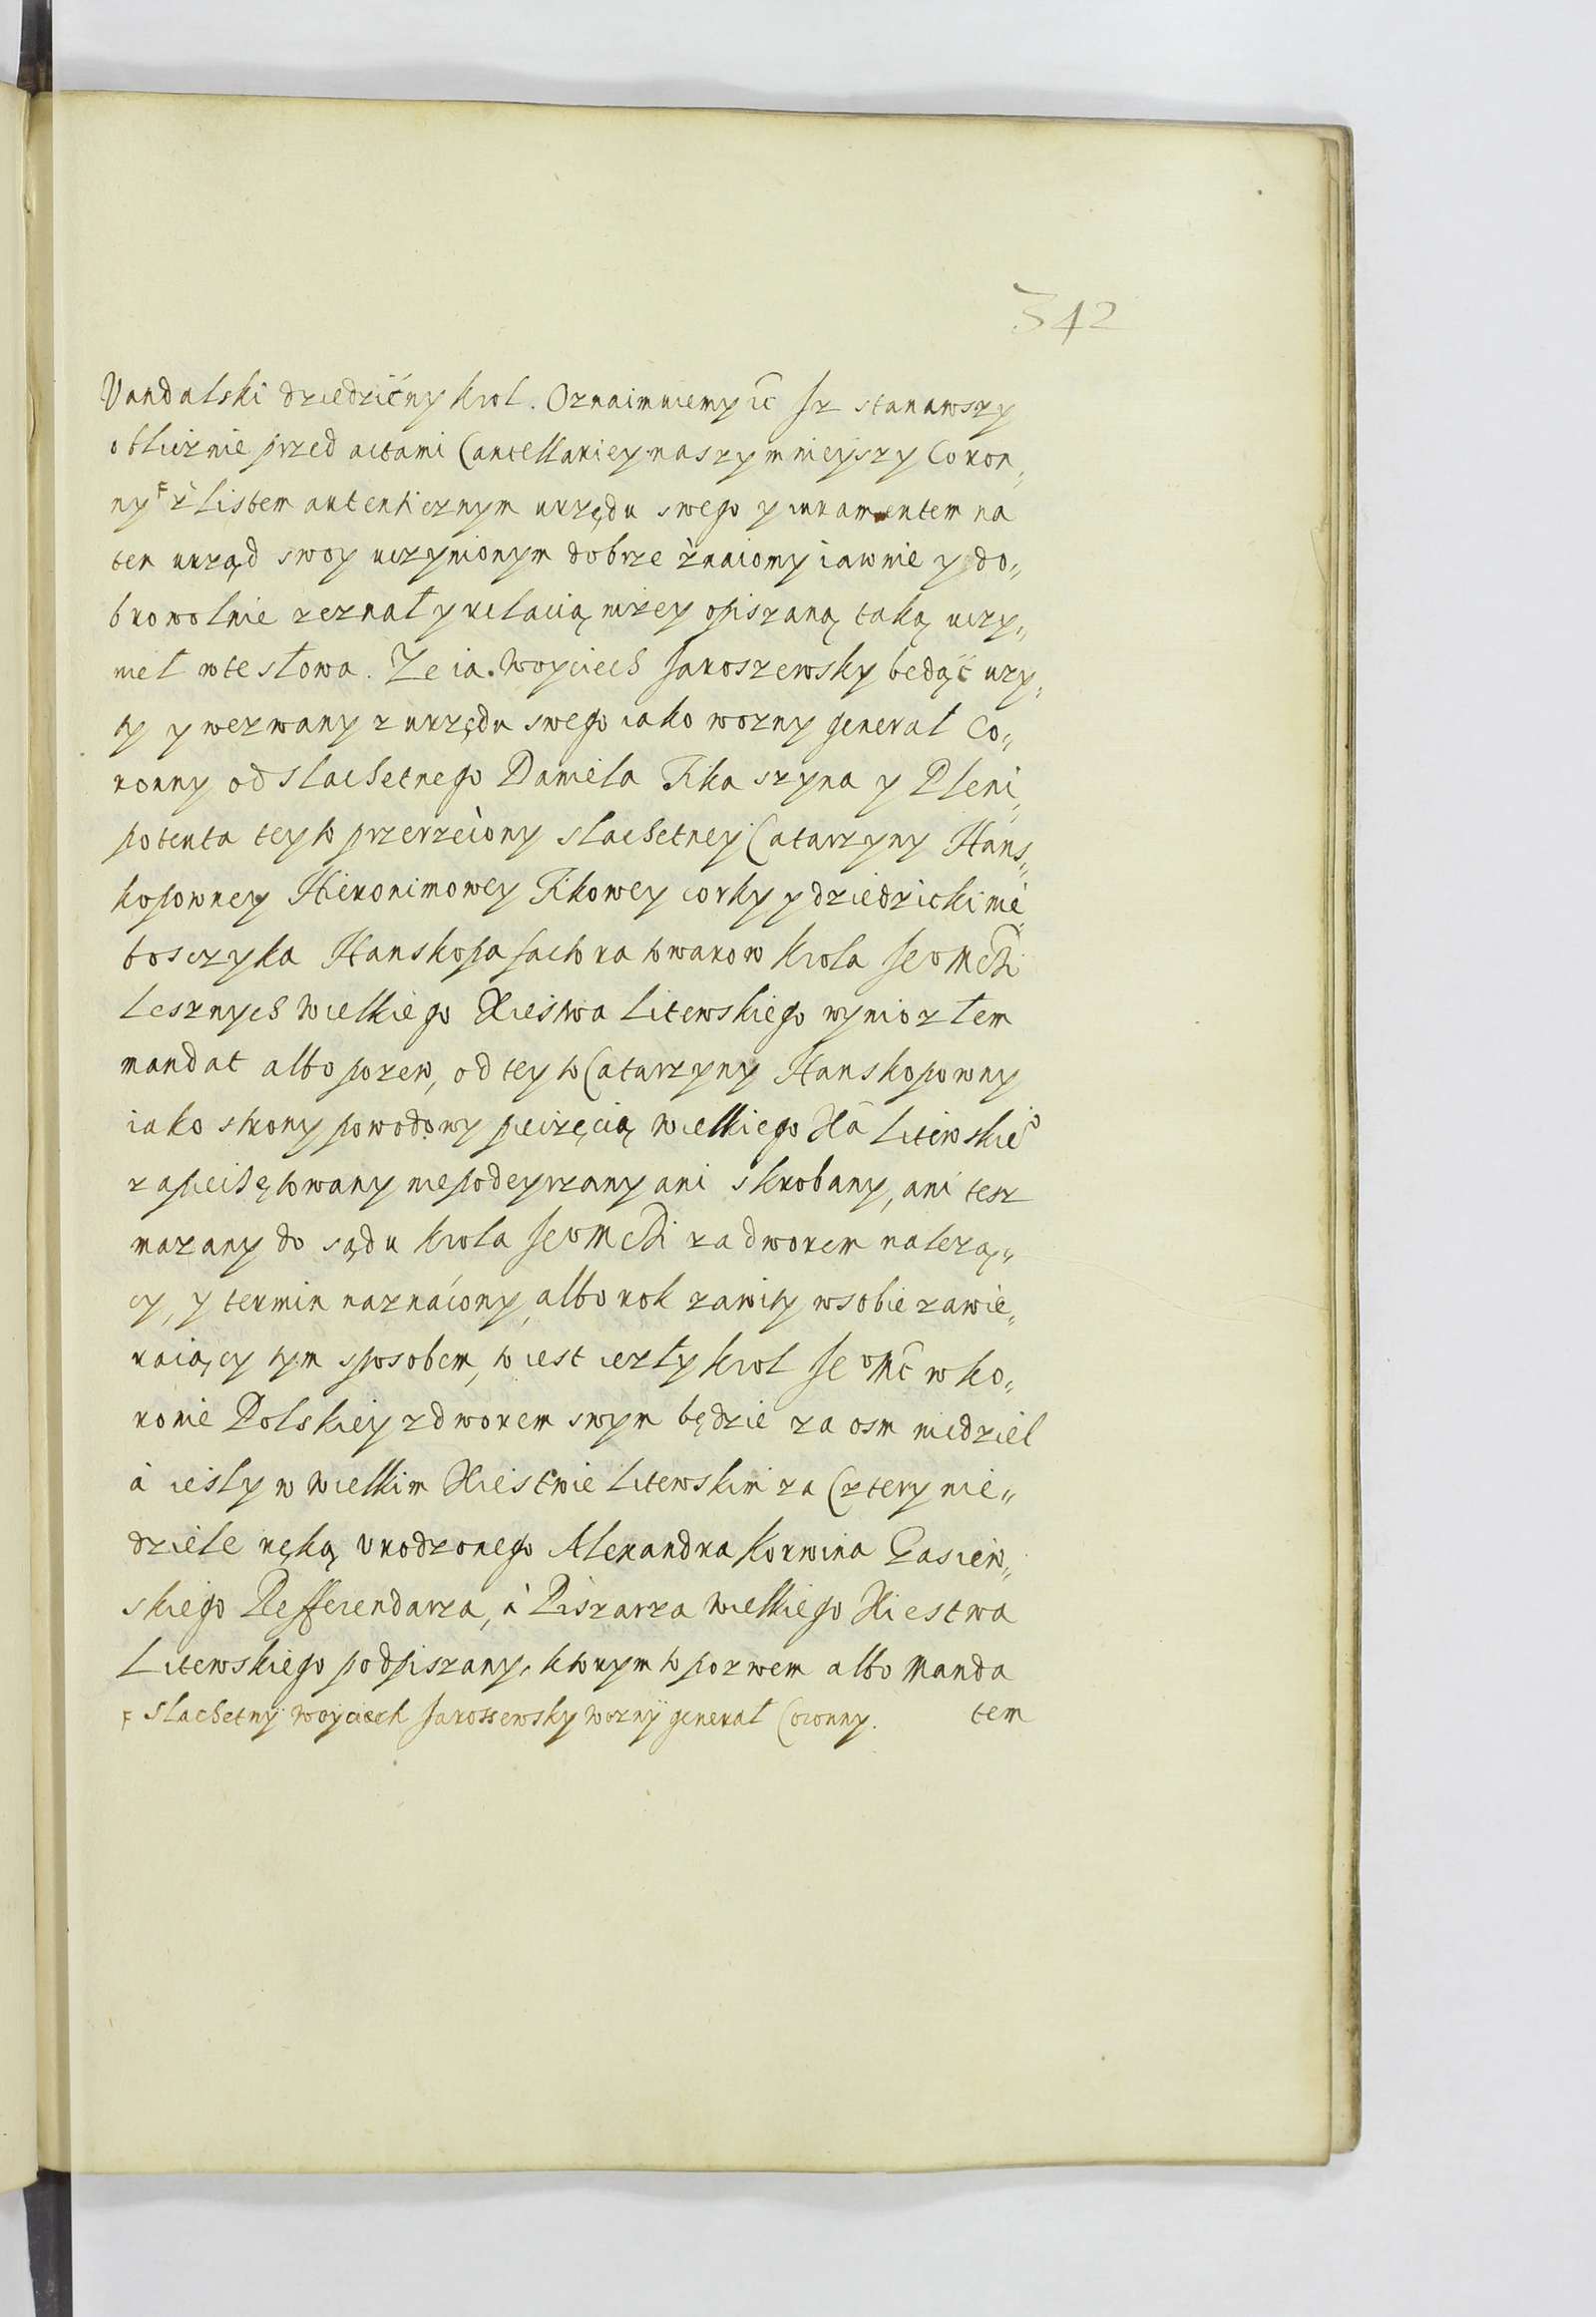 342
Vandalski dziedzićny krol. Oznaimuiemy ic Jz stanawszy
obliiznie przed actami Cancellariey naszym nieyszy Coron„
ny F z Listem autenticznym urzędu swego y iuramentem na
ten urząd swoy uczynionym dobrze znaiomy iawnie y do„
browolnie zeznał y relacią nizey opiszaną taką uczy„
nieł w te słowa. Ze ia. Woyciech Jaroszewsky bedąć uzy„
ty y wezwany z urzędu swego iako wozny generał Co„
ronny od slachetnego Daniela Fika szyna y Pleni„
potenta tey to przerzeiony slachetney Catarzyny Hans„
kopowney Hieronimowey Fikowey corky y dziedzicki nie„
bosczyka Hanskopa factora towarow krola Jeo Mci
Lesznych Wielkiego Xiestwa Litewskiego wyniozłem
mandat albo pozew, od tey to Catarzyny Hanskopowny
iako strony powodowy pieizęcią Wielkiego Xa Litewskieo
zapeiczętowany niepodeyrzany ani skrobany, ani tesz
mazany do sądu krola Jeo Mci za dworem nalezą„
cy, y termin naznaćony, albo rok zawity w sobie zawie„
raiący tym sposobem, to iest iezly krol Jeo Mć w ko„
ronie Polskiey z dworem swym będzie za osm niedziel
à iesly w Wielkim Xiestwie Litewskim za Cztery nie„
dziele ręką urodzonego Alexandra Korwina Gasiew„
skiego Refferendarza, à Piszarza Wielkiego Xiestwa
Litewskiego podpiszany, ktorym to pozwem albo Manda
F Slachetny Woyciech Jarossewsky wozny generał Coronny. tem